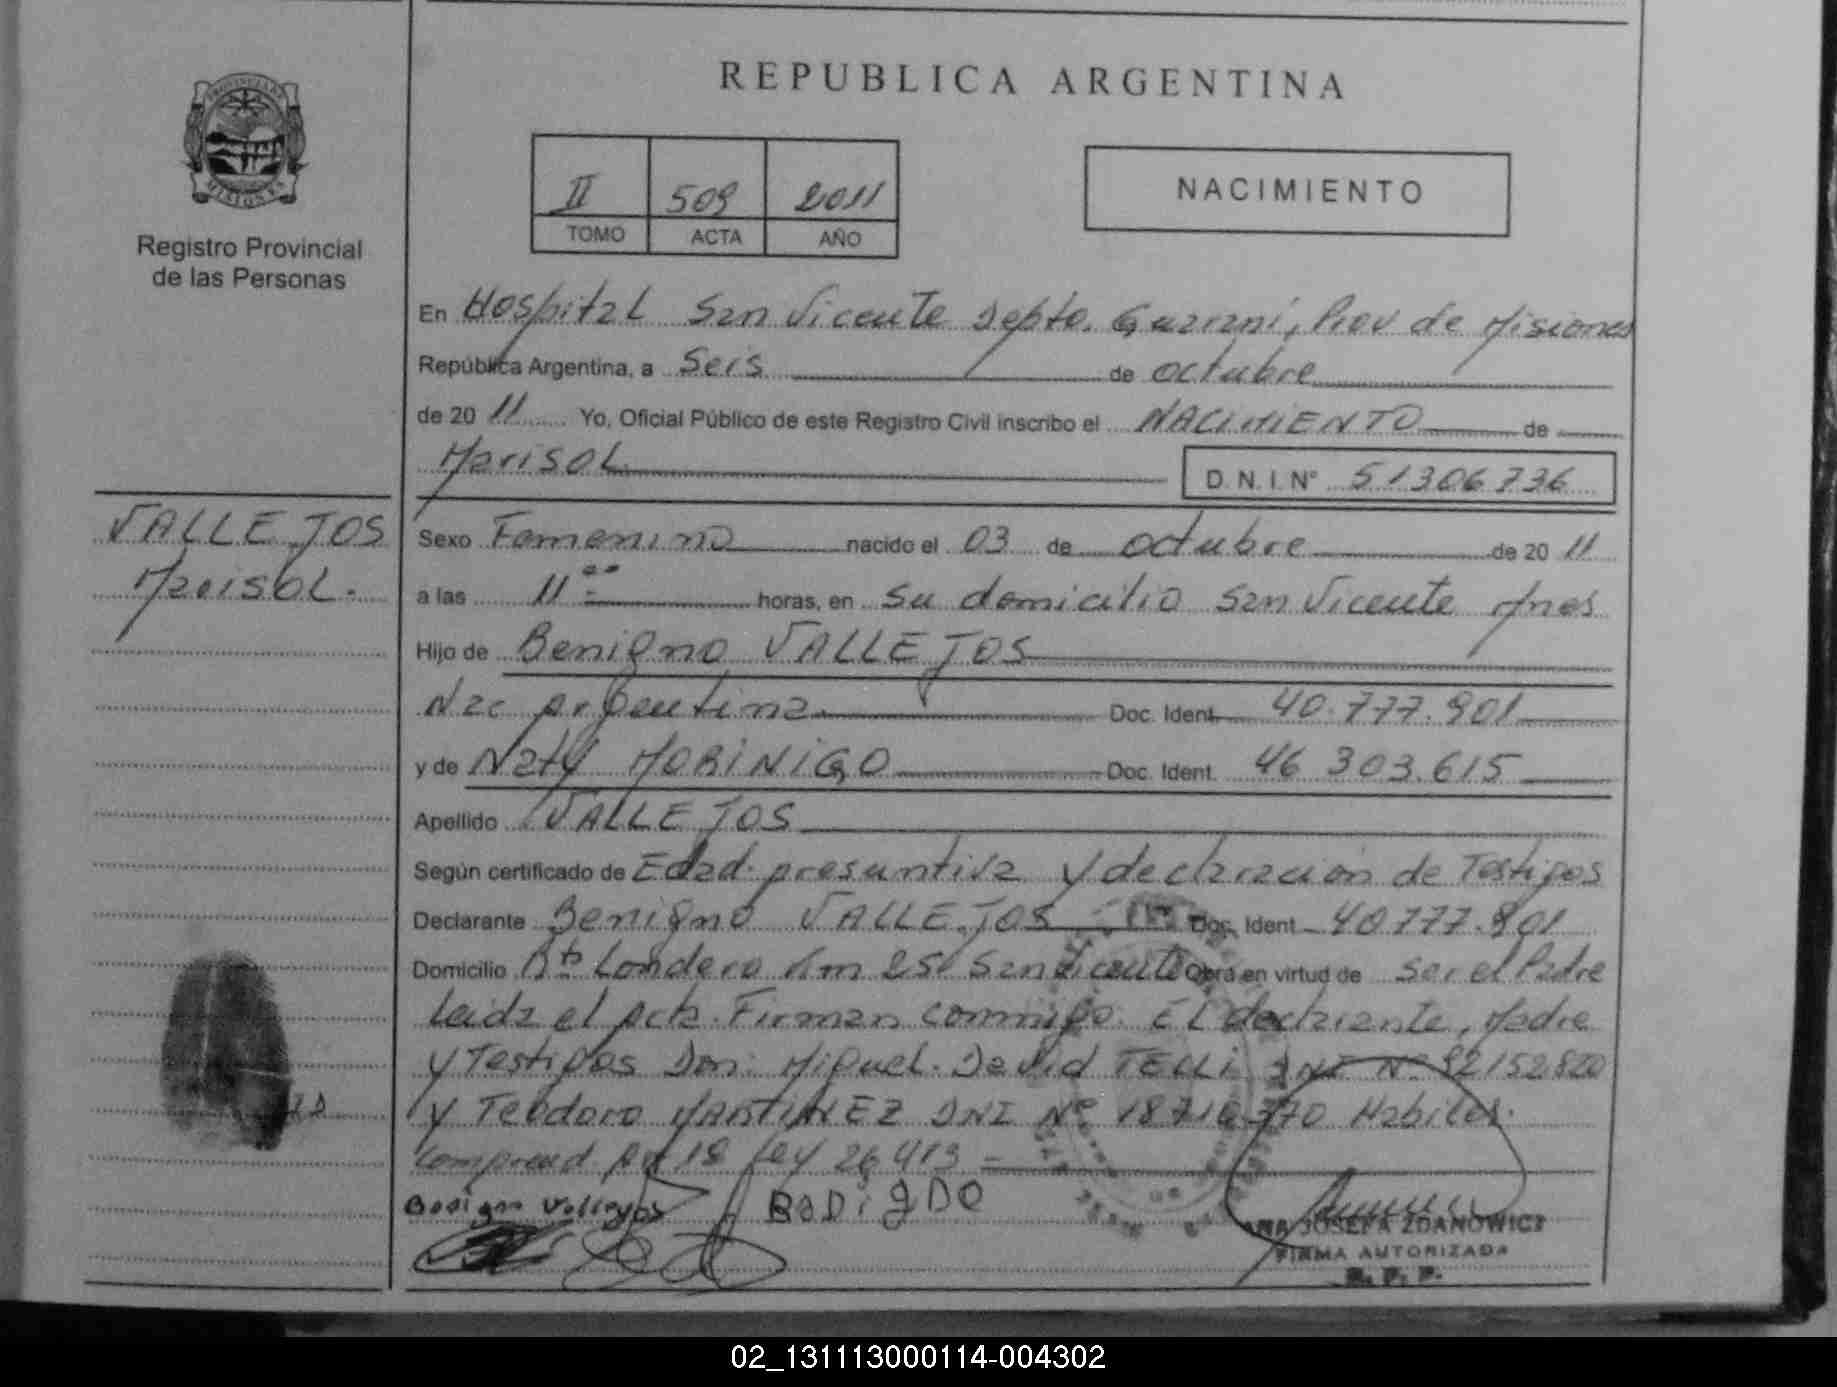 REPUBLICA ARGENTINA
PROVINCIA DE
MISIONES
Registro Provincial
de las Personas
II 509 2011
TOMO ACTA AÑO
NACIMIENTO
En Hospital San Vicente Depto. Guarani, Prov de Misiones
República Argentina, a Seis de octubre
de 20 11 Yo, Oficial Público de este Registro Civil inscribo el NACIMIENTO de
Marisol
D. N. I. Nº 51306736
VALLEJOS
Marisol.
Sexo Femenino nacido el 03 de octubre de 20 11
a las 11 horas, en su domicilio San Vicente Mnes
Hijo de Benigno VALLEJOS
Nac Argentina Doc. Ident. 40.777.901
y de Naty MORINIGO Doc. Ident. 46 303.615
Apellido VALLEJOS
Según certificado de Edad presuntiva y declaracion de Testigos
Declarante Benigno VALLEJOS Doc. Ident 40777.901
Domicilio Londero Km 25 San Vicente Obra en virtud de ser el Padre
Leida el Acta. Firman conmigo. El declarante, Madre
y Testigos Don: Miguel David TELLI DNI Nº 92152820
y Teodoro MARTINEZ DNI Nº 18716770 Habiles.
Comprend Ar 18 Ley 26 413
ANA JOSEFA ZDANOWICZ
FIRMA AUTORIZADA
R. P. P.
02_131113000114-004302